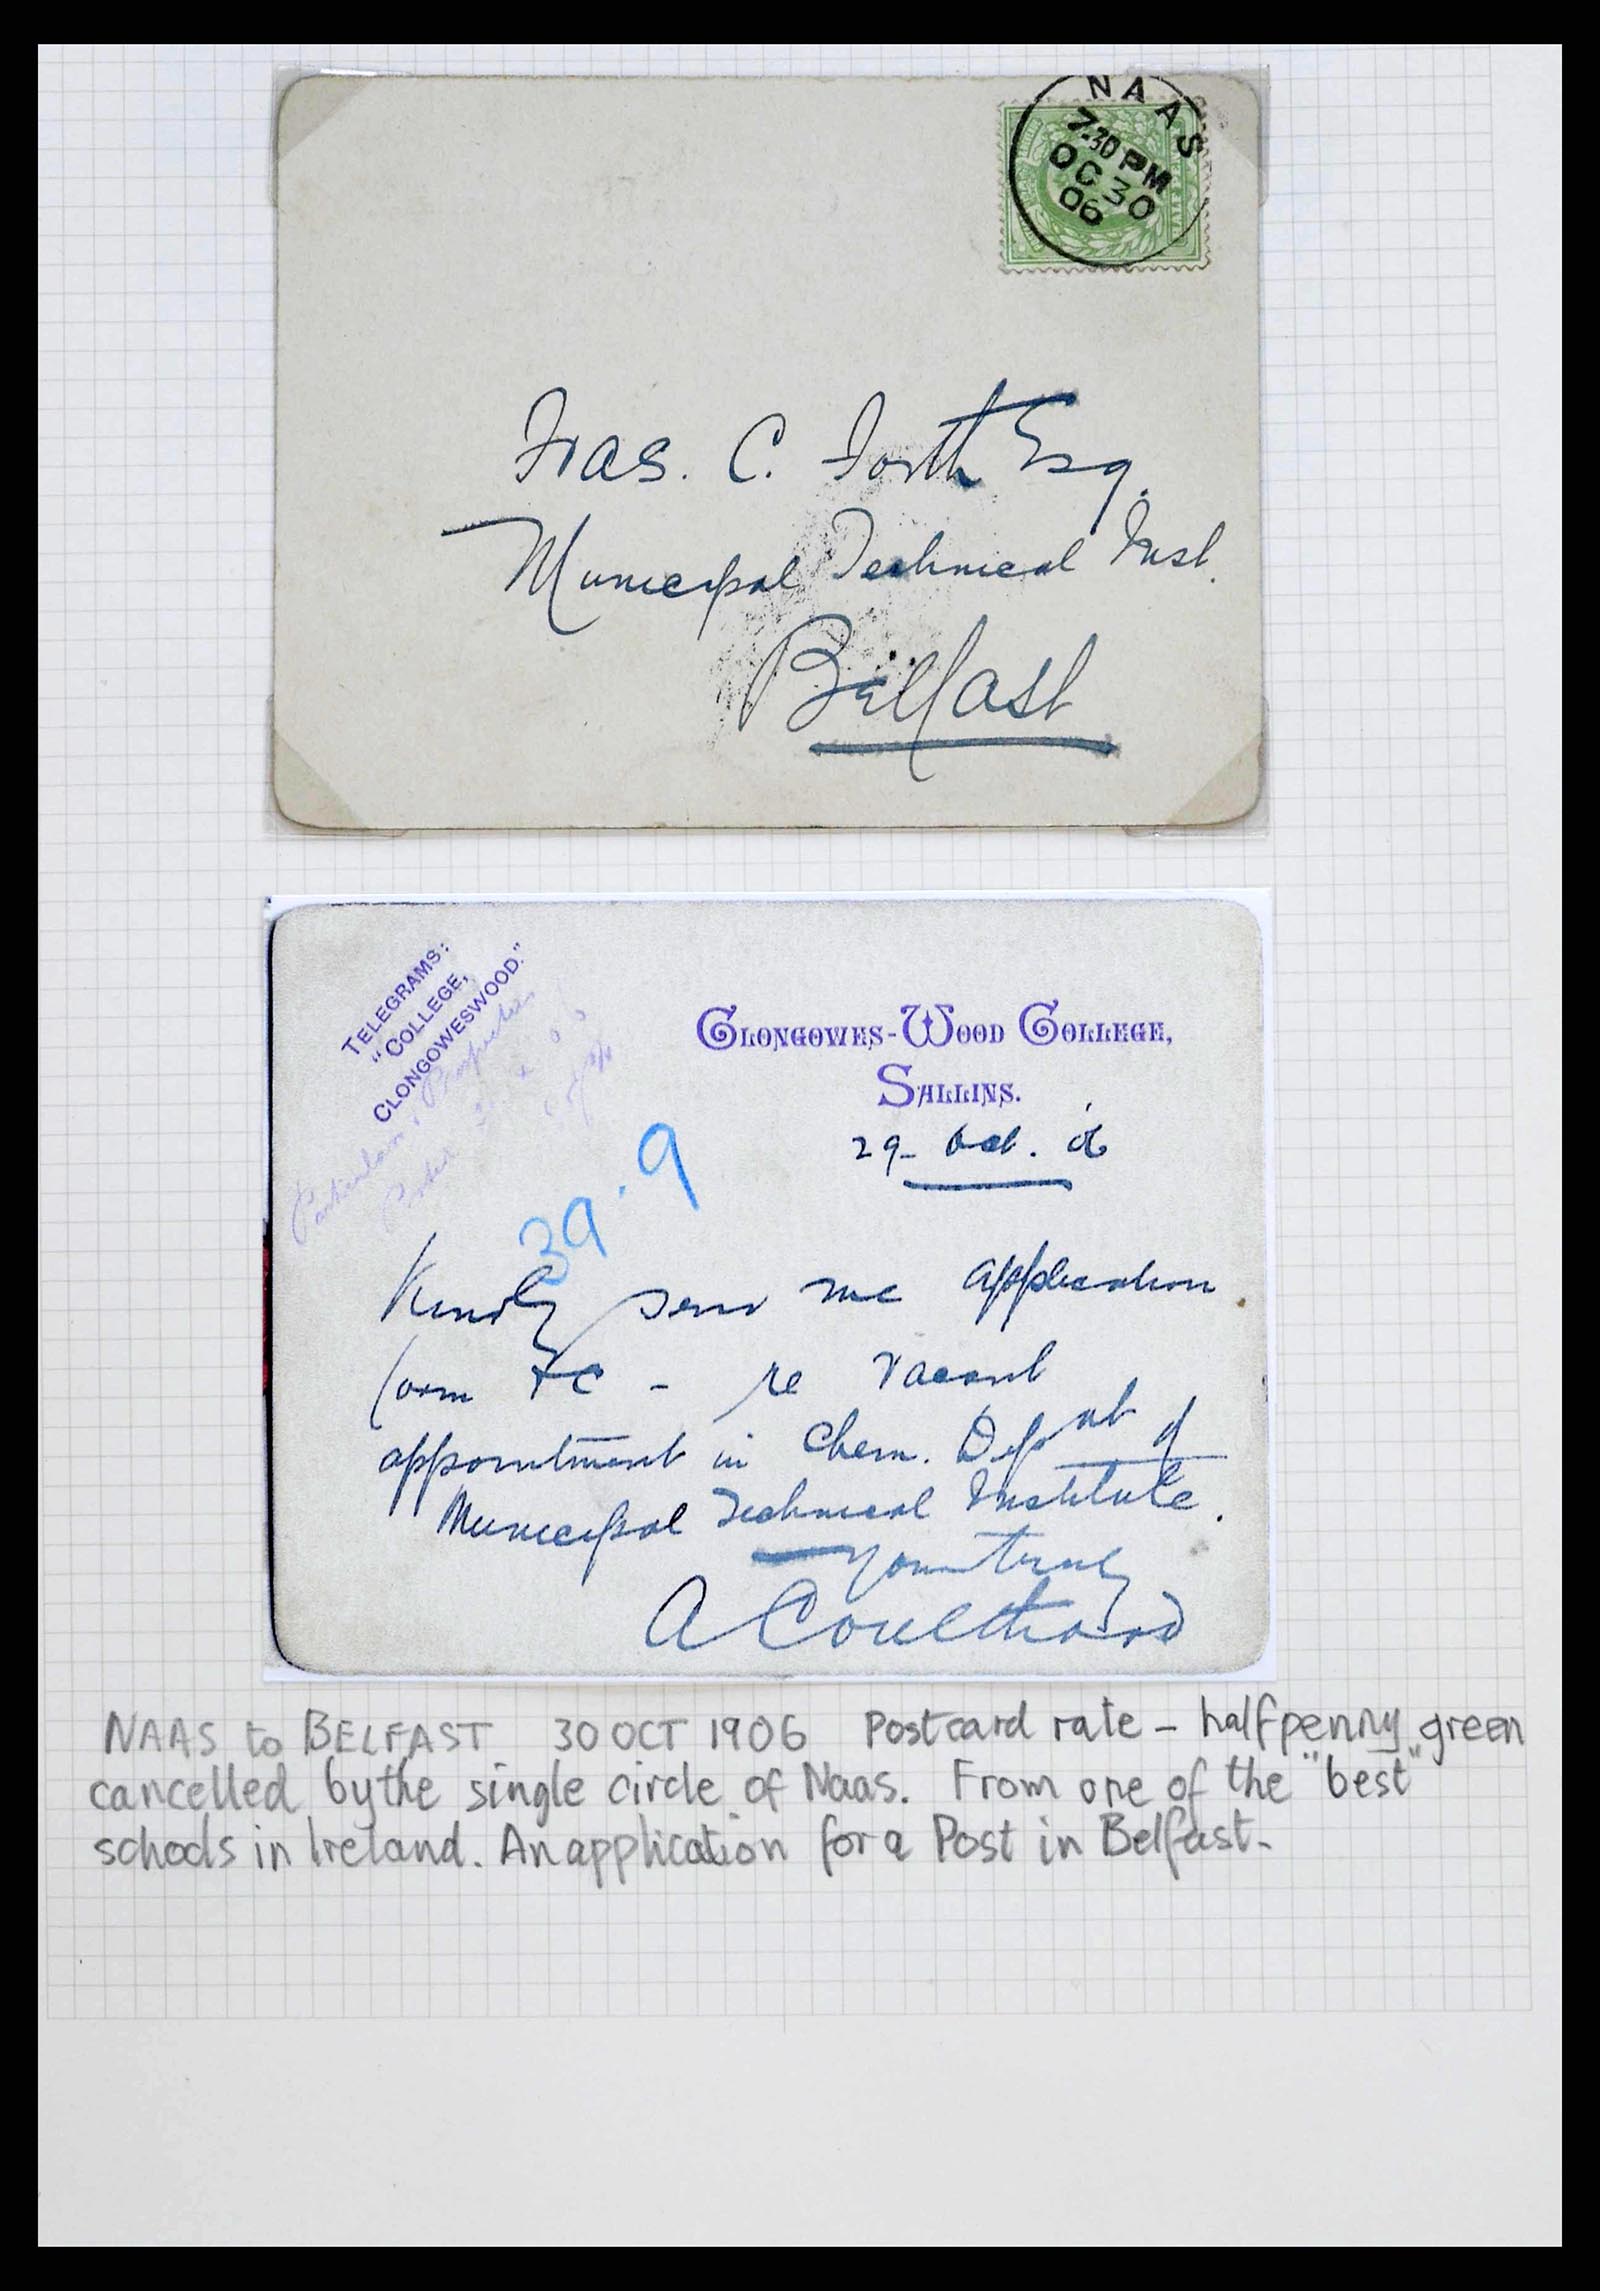 NAAS
7.30 PM
OC 30
06
Fras. C. Forth Esq.
Municipal Technical Inst.
Belfast
TELEGRAMS:
"COLLEGE,
CLONGOWESWOOD."
CLONGOWES-WOOD COLLEGE,
SALLINS.
29- Oct. '06
39.9
Kindly send me application
form &c - re vacant
appointment in Chem. Depart of
Municipal Technical Institute.
Yours truly
A Coulthard
NAAS to BELFAST 30 OCT 1906 Postcard rate - halfpenny green
cancelled by the single circle of Naas. From one of the "best"
schools in Ireland. An application for a Post in Belfast.